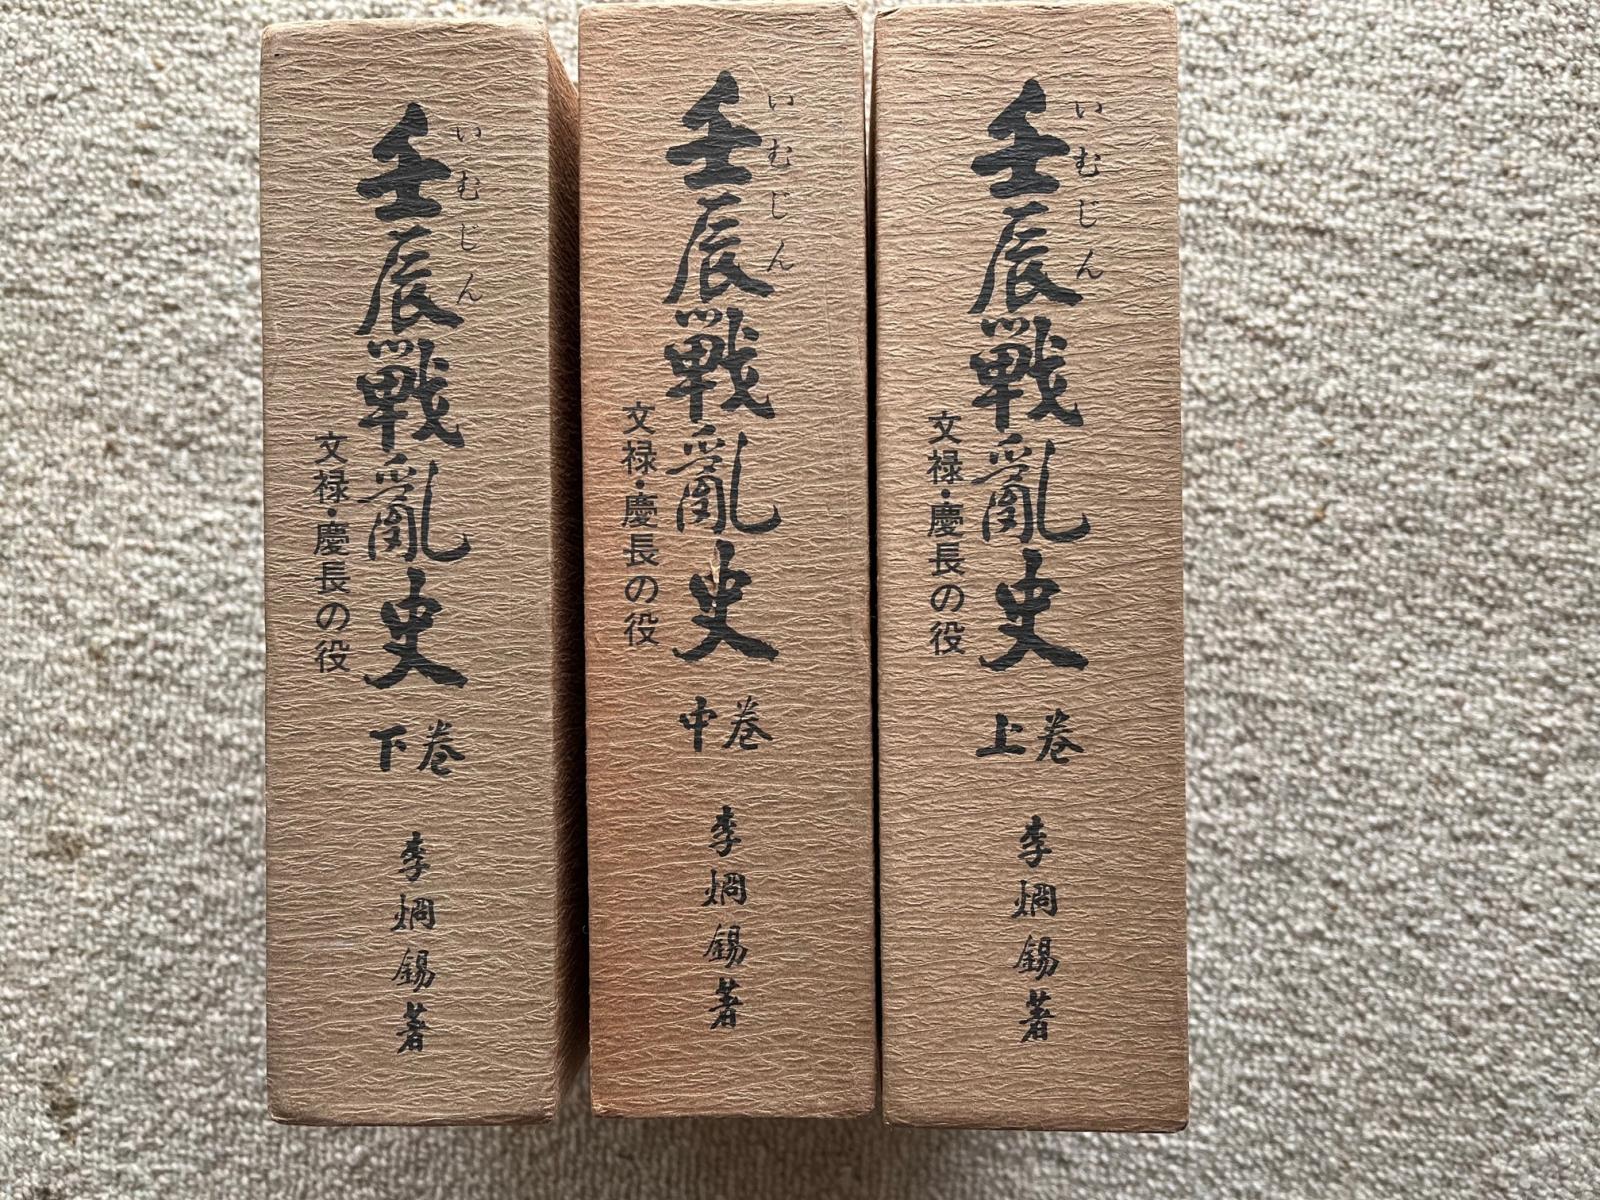 壬辰戰亂史
いむじん
文禄・慶長の役
上巻
李烱錫著
壬辰戰亂史
いむじん
文禄・慶長の役
中巻
李烱錫著
壬辰戰亂史
いむじん
文禄・慶長の役
下巻
李烱錫著